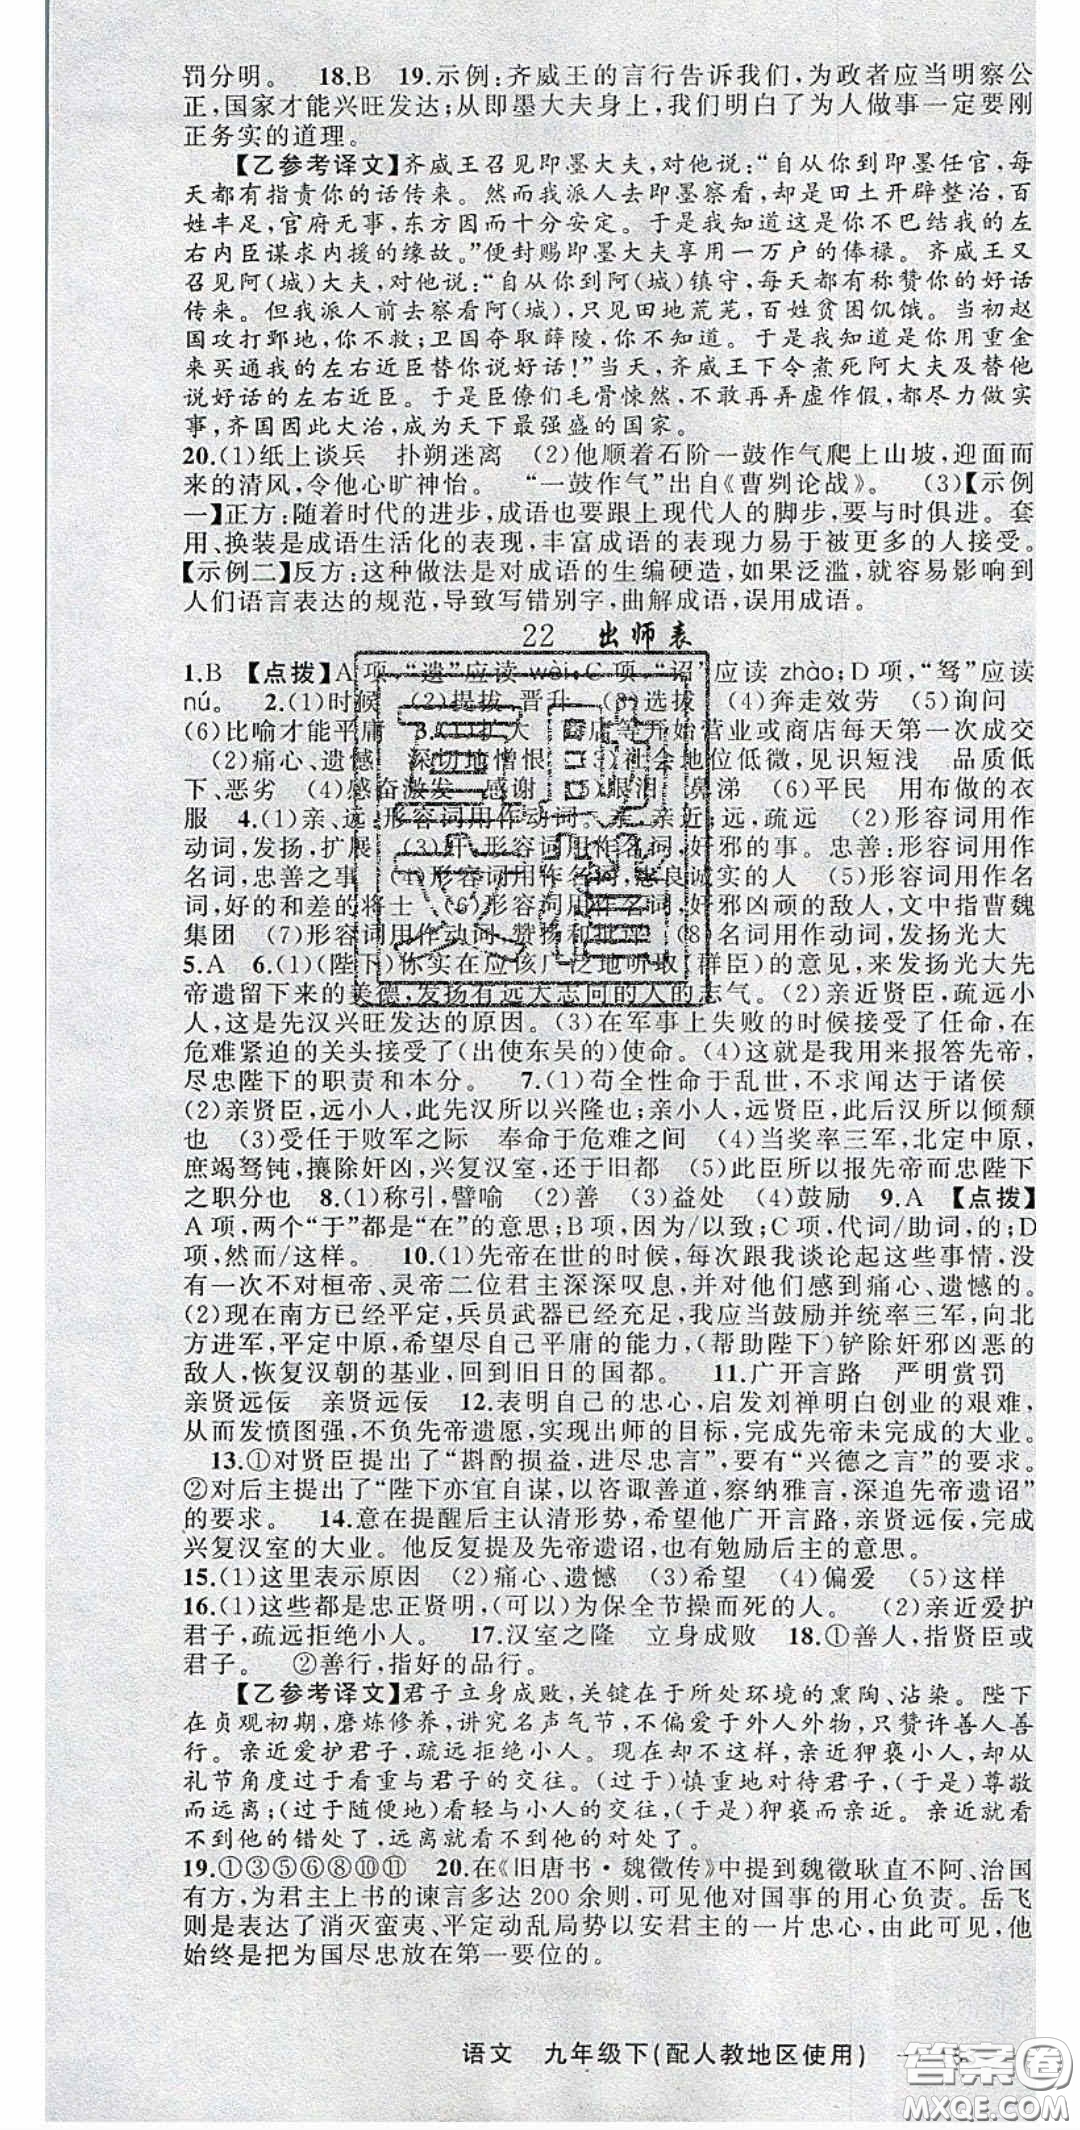 罚分明。　18.B　19.示例:齐威王的言行告诉我们,为政者应当明察公
正,国家才能兴旺发达;从即墨大夫身上,我们明白了为人做事一定要刚
正务实的道理。
【乙参考译文】齐威王召见即墨大夫,对他说:“自从你到即墨任官,每
天都有指责你的话传来。然而我派人去即墨察看,却是田土开辟整治,百
姓丰足,官府无事,东方因而十分安定。于是我知道这是你不巴结我的左
右内臣谋求内援的缘故。”便封赐即墨大夫享用一万户的俸禄。齐威王又
召见阿(城)大夫,对他说:“自从你到阿(城)镇守,每天都有称赞你的好话
传来。但我派人前去察看阿(城),只见田地荒芜,百姓贫困饥饿。当初赵
国攻打鄄地,你不救;卫国夺取薛陵,你不知道。于是我知道是你用重金
来买通我的左右近臣替你说好话!”当天,齐威王下令煮死阿大夫及替他
说好话的左右近臣。于是臣僚们毛骨悚然,不敢再弄虚作假,都尽力做实
事,齐国因此大治,成为天下最强盛的国家。
20.(1)纸上谈兵　扑朔迷离　(2)他顺着石阶一鼓作气爬上山坡,迎面而
来的清风,令他心旷神怡。　“一鼓作气”出自《曹刿论战》。　(3)【示例
一】正方:随着时代的进步,成语也要跟上现代人的脚步,要与时俱进。套
用、换装是成语生活化的表现,丰富成语的表现力易于被更多的人接受。
【示例二】反方:这种做法是对成语的生编硬造,如果泛滥,就容易影响到
人们语言表达的规范,导致写错别字,曲解成语,误用成语。
22　出师表
1.B　【点拨】A项,“遗”应读wèi;C项,“诏”应读zhào;D项,“驽”应读
nú。　2.(1)时候　(2)提拔　晋升　(3)选拔　(4)奔走效劳　(5)询问
(6)比喻才能平庸　3.(1)扩大　商店等开始营业或商店每天第一次成交
(2)痛心、遗憾　深切地憎恨　(3)社会地位低微,见识短浅　品质低
下、恶劣　(4)感奋激发　感谢　(5)眼泪　鼻涕　(6)平民　用布做的衣
服　4.(1)亲、远:形容词用作动词。亲,亲近;远,疏远　(2)形容词用作
动词,发扬,扩展　(3)奸:形容词用作名词,奸邪的事。忠善:形容词用作
名词,忠善之事　(4)形容词用作名词,忠良诚实的人　(5)形容词用作名
词,好的和差的将士　(6)形容词用作名词,奸邪凶顽的敌人,文中指曹魏
集团　(7)形容词用作动词,赞扬和批评　(8)名词用作动词,发扬光大
5.A　6.(1)(陛下)你实在应该广泛地听取(群臣)的意见,来发扬光大先
帝遗留下来的美德,发扬有远大志向的人的志气。(2)亲近贤臣,疏远小
人,这是先汉兴旺发达的原因。(3)在军事上失败的时候接受了任命,在
危难紧迫的关头接受了(出使东吴的)使命。(4)这就是我用来报答先帝,
尽忠陛下的职责和本分。　7.(1)苟全性命于乱世,不求闻达于诸侯
(2)亲贤臣,远小人,此先汉所以兴隆也;亲小人,远贤臣,此后汉所以倾颓
也　(3)受任于败军之际　奉命于危难之间　(4)当奖率三军,北定中原,
庶竭驽钝,攘除奸凶,兴复汉室,还于旧都　(5)此臣所以报先帝而忠陛下
之职分也　8.(1)称引,譬喻　(2)善　(3)益处　(4)鼓励　9.A　【点拨】
A项,两个“于”都是“在”的意思;B项,因为/以致;C项,代词/助词,的;D
项,然而/这样。　10.(1)先帝在世的时候,每次跟我谈论起这些事情,没
有一次不对桓帝、灵帝二位君主深深叹息,并对他们感到痛心、遗憾的。
(2)现在南方已经平定,兵员武器已经充足,我应当鼓励并统率三军,向北
方进军,平定中原,希望尽自己平庸的能力,(帮助陛下)铲除奸邪凶恶的
敌人,恢复汉朝的基业,回到旧日的国都。　11.广开言路　严明赏罚
亲贤远佞　亲贤远佞　12.表明自己的忠心,启发刘禅明白创业的艰难,
从而发愤图强,不负先帝遗愿,实现出师的目标,完成先帝未完成的大业。
13.①对贤臣提出了“斟酌损益,进尽忠言”,要有“兴德之言”的要求。
②对后主提出了“陛下亦宜自谋,以咨诹善道,察纳雅言,深追先帝遗诏”
的要求。　14.意在提醒后主认清形势,希望他广开言路,亲贤远佞,完成
兴复汉室的大业。他反复提及先帝遗诏,也有勉励后主的意思。
15.(1)这里表示原因　(2)痛心、遗憾　(3)希望　(4)偏爱　(5)这样
16.(1)这些都是忠正贤明,(可以)为保全节操而死的人。　(2)亲近爱护
君子,疏远拒绝小人。　17.汉室之隆　立身成败　18.①善人,指贤臣或
君子。　②善行,指好的品行。
【乙参考译文】君子立身成败,关键在于所处环境的熏陶、沾染。陛下
在贞观初期,磨炼修养,讲究名声气节,不偏爱于外人外物,只赞许善人善
行。亲近爱护君子,疏远拒绝小人。现在却不这样,亲近狎亵小人,却从
礼节角度过于看重与君子的交往。(过于)慎重地对待君子,(于是)尊敬
而远离;(过于随便地)看轻与小人的交往,(于是)狎亵而亲近。亲近就看
不到他的错处了,远离就看不到他的对处了。
19.①③⑤⑥⑧⑩⑪　20.在《旧唐书·魏徵传》中提到魏徵耿直不阿、治国
有方,为君主上书的谏言多达200余则,可见他对国事的用心负责。岳飞
则是表达了消灭蛮夷、平定动乱局势以安君主的一片忠心,由此可见,他
始终是把为国尽忠放在第一要位的。
语文　九年级下(配人教地区使用)
答案圈
MXQE.COM